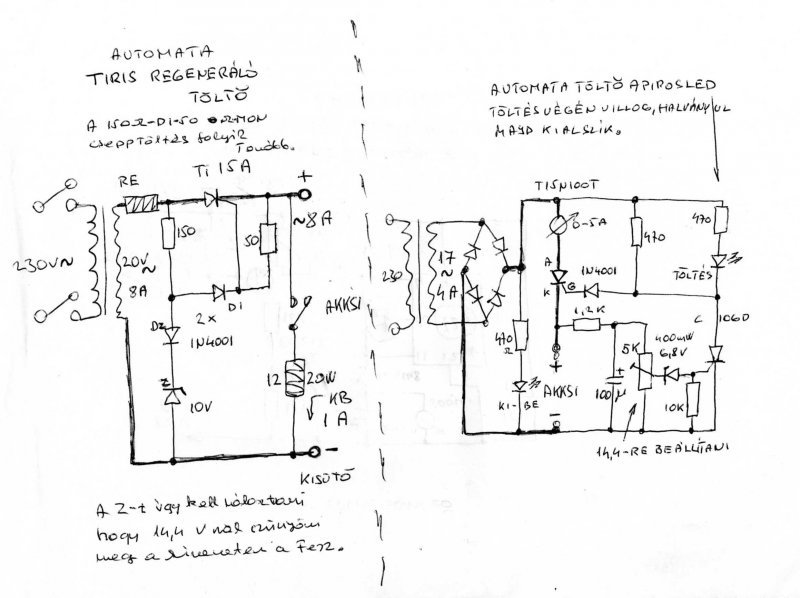 AUTOMATA
TIRIS REGENERÁLÓ
TÖLTŐ
A 150Ω-DI-50 ORMON
csepptöltés folyik
tovább.
RE
Ti 15A
+
~8A
150
50
230V~
20V
~
8A
Di
2x
DZ
1N4001
Z
10V
AKKSI
12
20W
KB
1 A
−
KISÜTŐ
A Z-t úgy kell
hogy 14,4 V nál szűnjön
meg a a Fesz.
AUTOMATA TÖLTŐ A PIROS LED
TÖLTÉS VÉGÉN VILLOG, HALVÁNYUL
MAJD KIALSZIK.
T15N100T
0-5A
470
470
TÖLTÉS
230
17
~
4A
A
K
G
1N4001
C
106D
1,2K
470
Ω
KI-BE
+
AKKSI
−
+
100
μ
5K
400mW
6,8V
10K
14,4-RE BEÁLLÍTANI